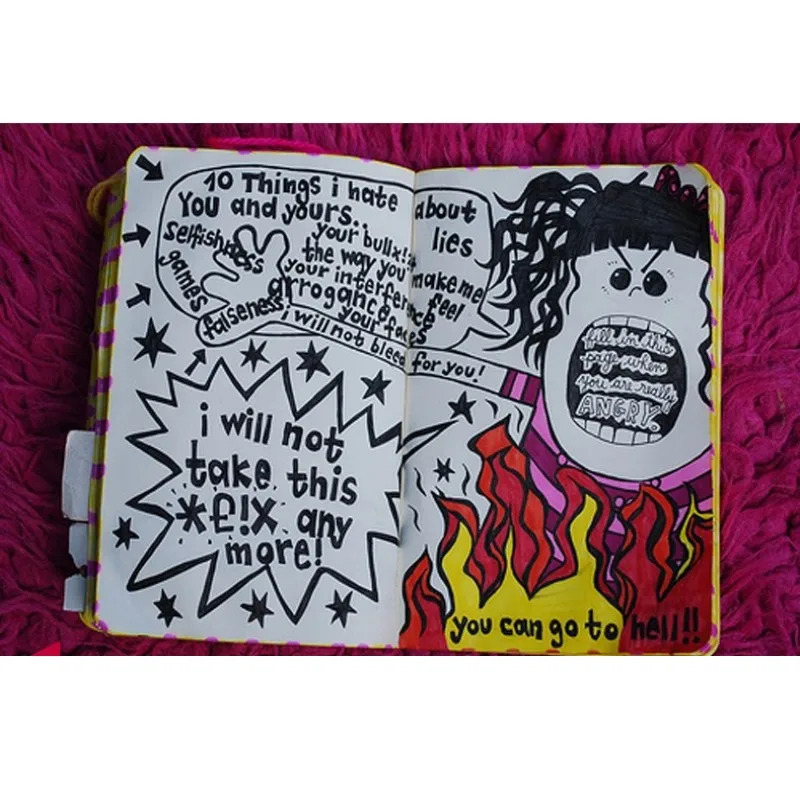 10 Things i hate about
You and yours..
your bullx!*
lies
selfishness
the way you make me feel
games
your interference
arrogance
your faces
falseness
i will not bleed for you!
i will not
take this
*£!X any
more!
fill in this
page when
you are really
ANGRY.
you can go to hell!!